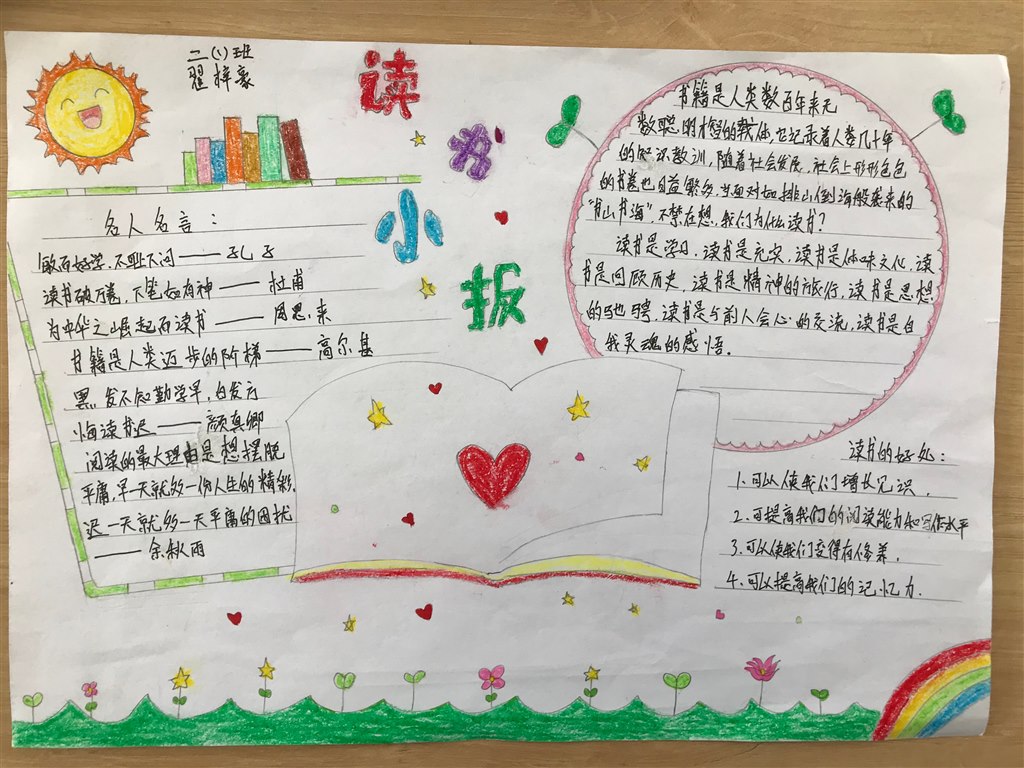 二(1)班
翟梓豪
读
书
小
报
名人名言：
敏而好学，不耻下问——孔子
读书破万卷，下笔如有神——杜甫
为中华之崛起而读书——周恩来
书籍是人类迈步的阶梯——高尔基
黑发不知勤学早，白发方
悔读书迟——颜真卿
阅读的最大理由是想摆脱
平庸，早一天就多一份人生的精彩，
迟一天就多一天平庸的困扰
——余秋雨
书籍是人类数百年来无
数聪明才智的载体，它记录着人类几千年
的知识教训，随着社会发展，社会上形形色色
的书卷也日益繁多，当面对如排山倒海般袭来的
“书山书海”，不禁在想，我们为什么读书？
读书是学习，读书是充实，读书是体味文化，读
书是回顾历史，读书是精神的旅行，读书是思想
的驰骋，读书是与前人会心的交流，读书是自
我灵魂的感悟。
读书的好处：
1、可以使我们增长见识，
2、可提高我们的阅读能力和写作水平
3、可以使我们变得有修养，
4、可以提高我们的记忆力.